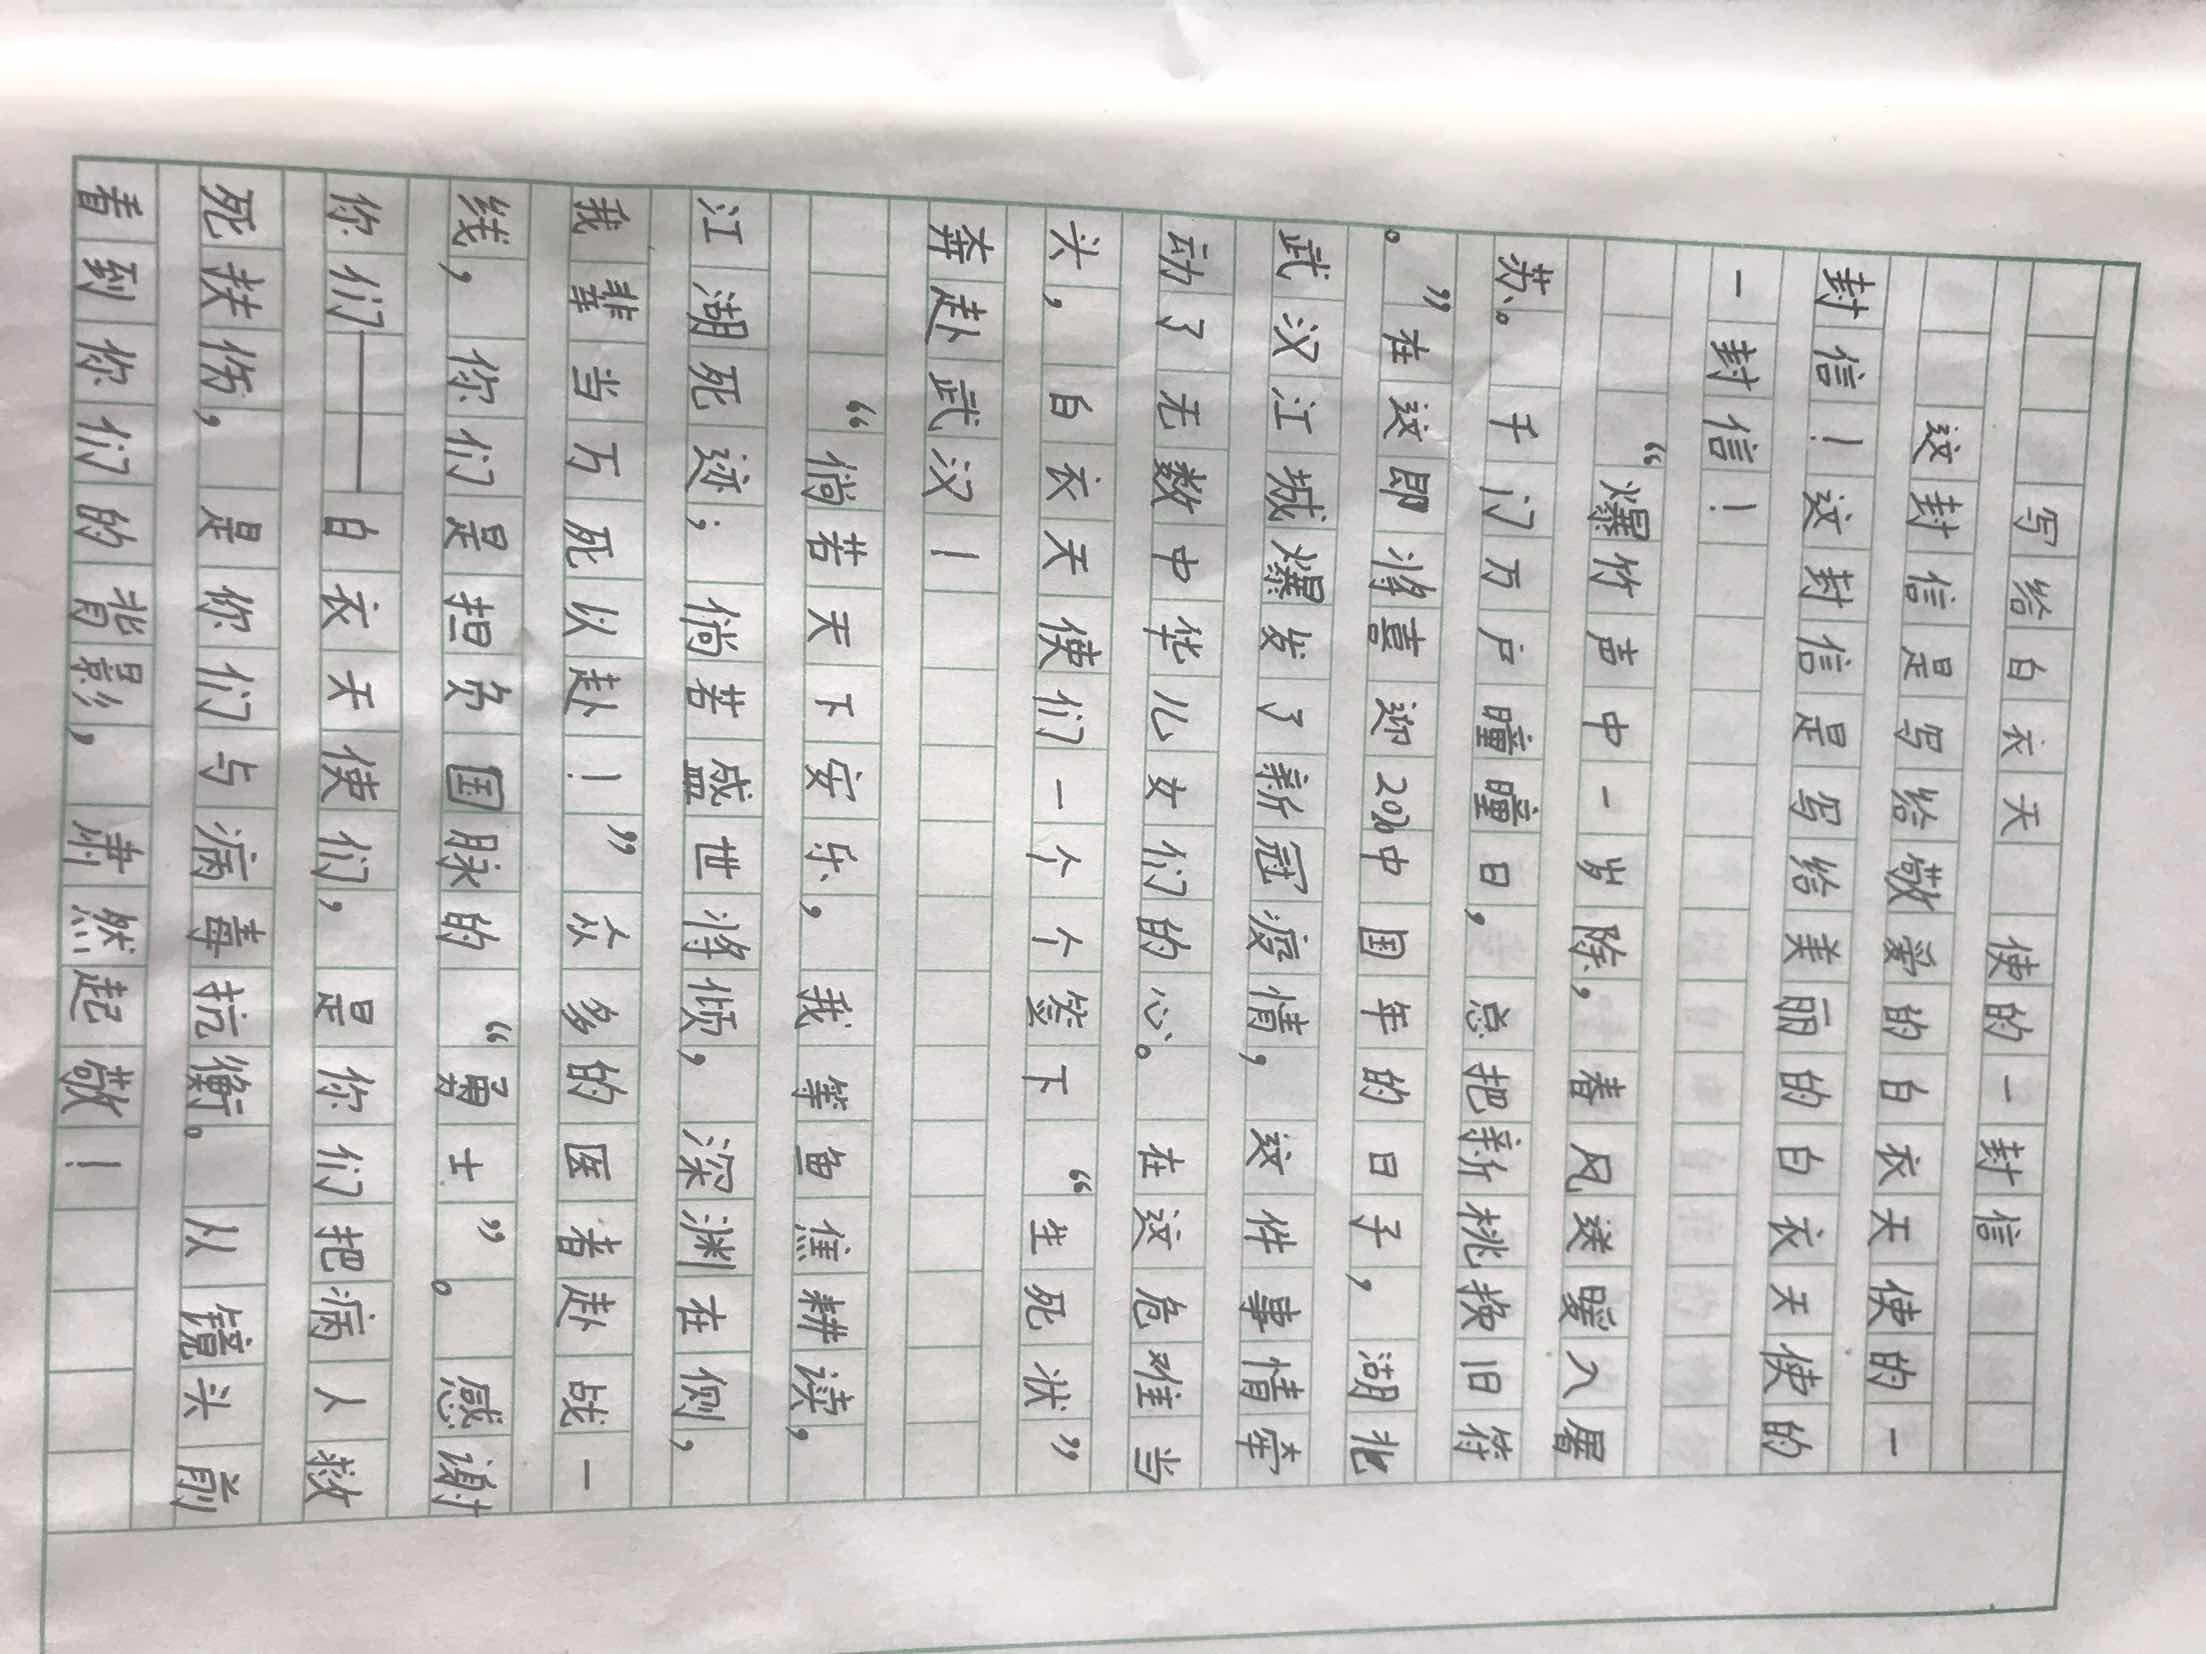 写给白衣天使的一封信
这封信是写给敬爱的白衣天使的一
封信！这封信是写给美丽的白衣天使的
一封信！
“爆竹声中一岁除，春风送暖入屠
苏。千门万户曈曈日，总把新桃换旧符
。”在这即将喜迎2020中国年的日子，湖北
武汉江城爆发了新冠疫情，这件事情牵
动了无数中华儿女们的心。在这危难当
头，白衣天使们一个个签下“生死状”
奔赴武汉！
“倘若天下安乐，我等鱼焦耕读，
江湖死迹；倘若盛世将倾，深渊在侧，
我辈当万死以赴！”众多的医者赴战一
线，你们是担负国脉的“勇士”。感谢
你们——白衣天使们，是你们把病人救
死扶伤，是你们与病毒抗衡。从镜头前
看到你们的背影，肃然起敬！